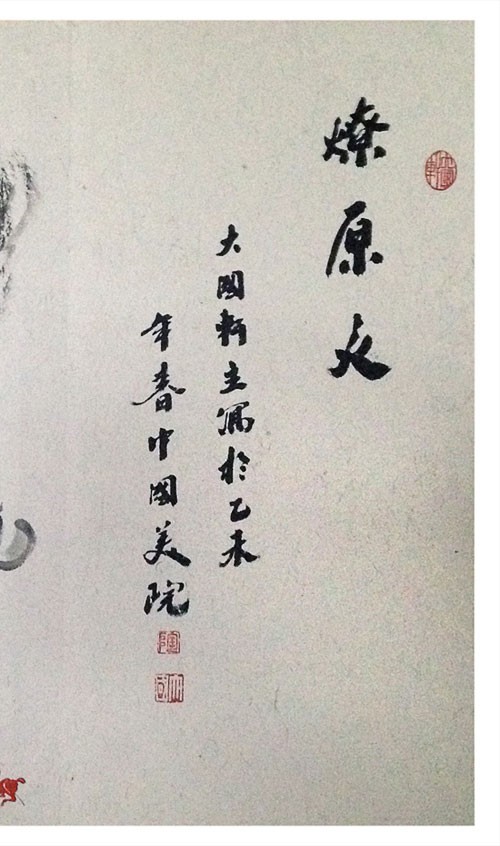 燎原火
大國軒主寫於乙未
年春中國美院